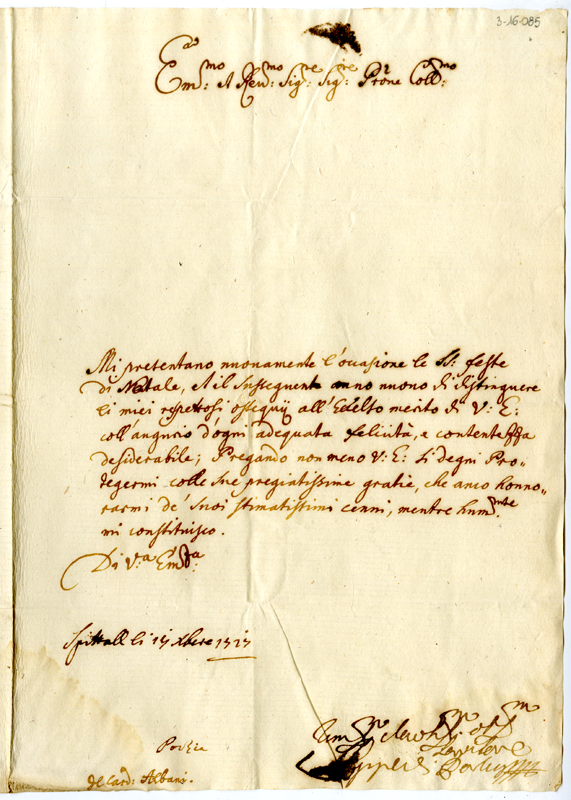 3-16-085
Em.mo A Rev.mo Sig.re Sig.re Pr̃one Coll.mo
Mi presentano nuouamente l'occasione le SS: feste
di Natale, et il susseguente anno nuouo di distinguere
li miei rispettosi ossequij all'Eccelso merito di V: E:
coll'augurio d'ogni adequata felicità, e contentessa
desiderabile; Pregando non meno V: E: si degni Pro-
tegermi colle sue pregiatissime gratie, che anco honno-
rarmi de' suoi stimatissimi cenni, mentre hum.mte
mi constituisco.
Di V.a Em.za
Spittall li 15 Xbere
de Card: Albani.